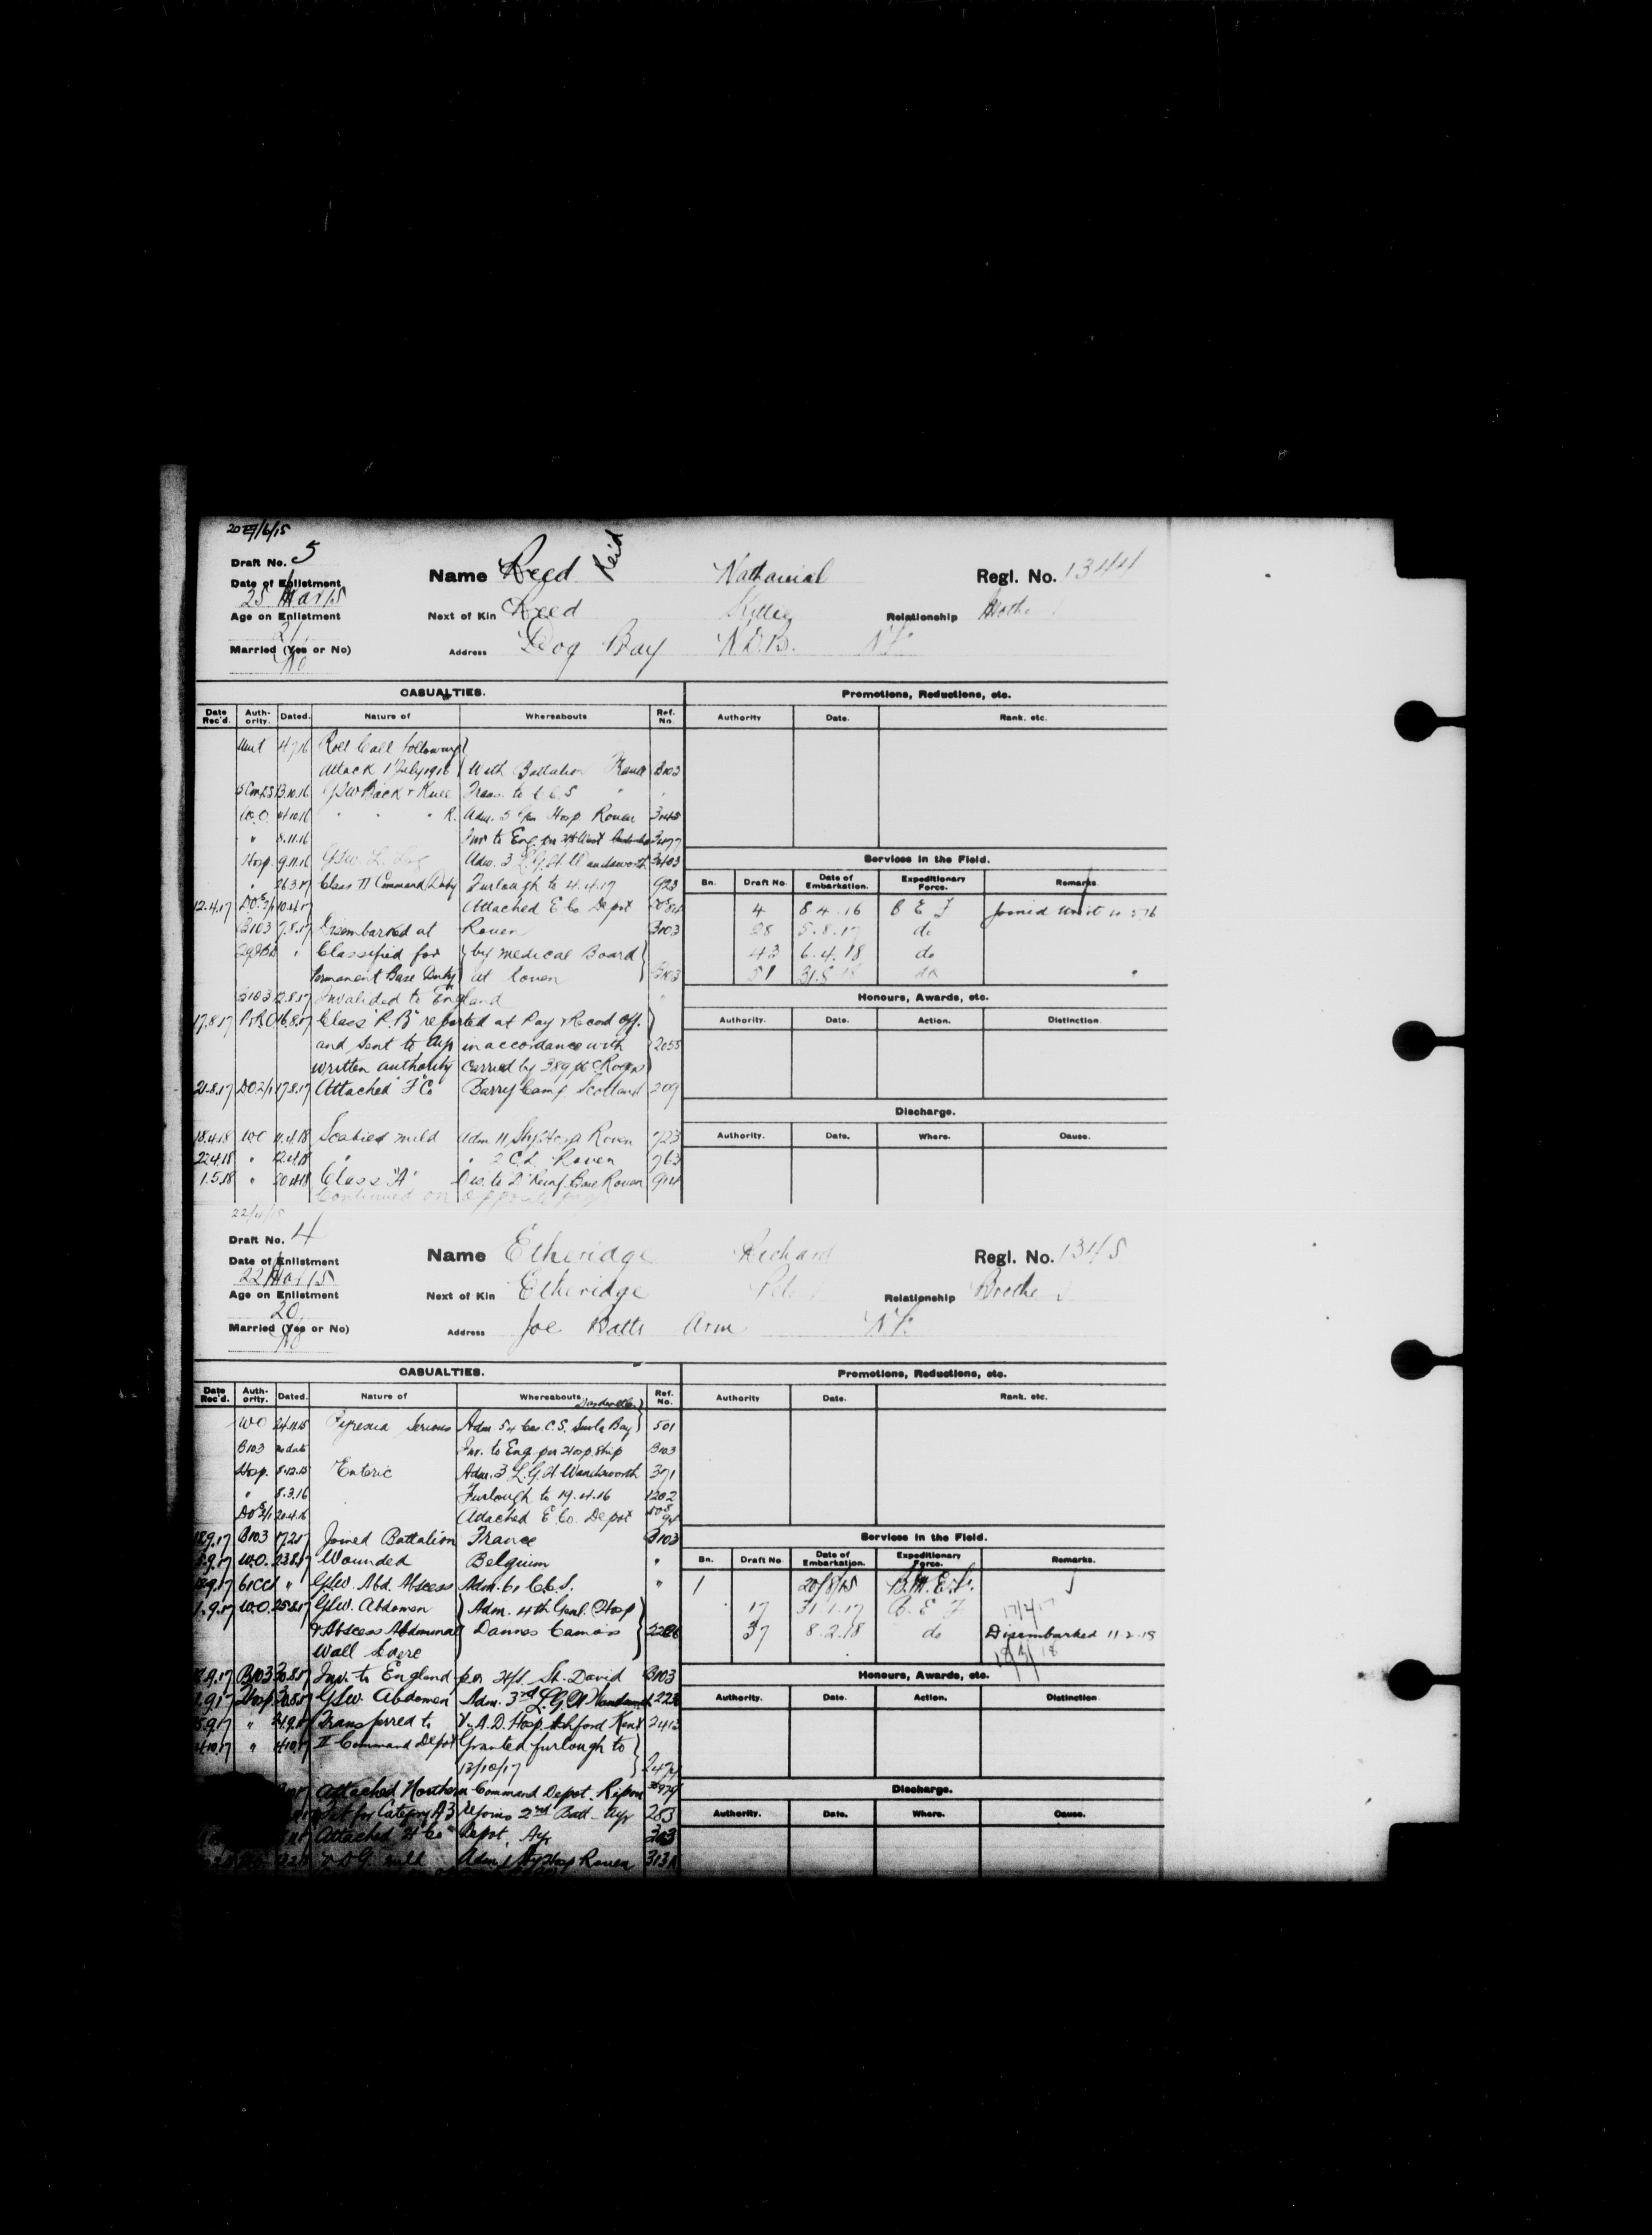 Draft No. 5
Date of Enlistment
25 Mar 15
Age on Enlistment
21
Married (Yes or No)
No
Name Reed Reid Nathanial Regl. No. 1344
Next of Kin Reed Relationship
Address Dog Bay N.D.B. Nf.
CASUALTIES.
Date Rec'd. Authority. Dated. Nature of Whereabouts Ref. No.
Unit 4.7.16 Roll Call following
Attack 1 July 1916 With Battalion France B103
13.10.16 GSW Back & Knee Trans. to C C S "
W.O. " " R. Adm. 5 Gen Hosp Rouen
" 5.11.16 Inv to Eng. per
Hosp. 9.11.16 GSW. L. Leg Adm. 3 L.G.H. Wandsworth
" 26.3.17 Class II Command Duty Furlough to 4.4.17 923
12.4.17 Attached E Co. Depot
B103 7.8.17 Disembarked at Rouen B103
" Classified for by medical Board
Permanent Base Duty at Rouen B103
B103 12.8.17 Invalided to England "
17.8.17 16.8.17 Class "P.B" reported at Pay & Record Off.
and sent to Ayr in accordance with 2055
written authority carried by
21.8.17 17.8.17 Attached "F" Co Barry Camp Scotland 209
18.4.18 WO 11.4.18 Scabies mild Adm 11 Sty Hosp Rouen 723
22.4.18 " 12.4.18 " " 2 C.D. Rouen 763
1.5.18 " 20.4.18 Class "A" Dis. to "D" Reinf. Base Rouen
Continued on opposite page
Promotions, Reductions, etc.
Authority Date. Rank. etc.
Services in the Field.
Bn. Draft No. Date of Embarkation. Expeditionary Force. Remarks.
4 8.4.16 B E F Joined Unit
28 5.8.17 do
43 6.4.18 do
51 31.8.18 do
Honours, Awards, etc.
Authority. Date. Action. Distinction.
Discharge.
Authority. Date. Where. Cause.
Draft No. 4
Date of Enlistment
22 Mar 15
Age on Enlistment
20
Married (Yes or No)
No
Name Etheridge Richard Regl. No. 1345
Next of Kin Etheridge Relationship Brother
Address Joe Batts Arm Nf.
CASUALTIES.
Date Rec'd. Authority. Dated. Nature of Whereabouts Ref. No.
WO 24.11.15 Pyrexia Serious Adm 54 Cas. C.S. Suvla Bay 501
B103 no date Inv. to Eng. per Hosp. Ship B103
Hosp. 8.12.15 Enteric Adm. 3 L.G.H. Wandsworth 371
" 8.3.16 Furlough to 19.4.16 1202
20.4.16 Attached E Co. Depot
B103 Joined Battalion France B103
W.O. 23.8.17 Wounded Belgium "
61CCS " GSW. Abd. Abscess Adm. 61 C.C.S. "
W.O. 25.8.17 GSW. Abdomen Adm. 4th Genl. Hosp
& Abscess Abdominal Dannes Camiers
Wall Severe
B103 30.8.17 Inv. to England per H/S. St. David B103
Hosp. GSW. Abdomen Adm. 3rd L.G.H. Wandsworth
" Transferred to V.A.D. Hosp. Ashford Kent
" II Command Depot Granted furlough to
13/10/17
Attached Northern Command Depot. Ripon
Fit for Category A3 Rejoins 2nd Batt - Ayr 253
Attached "H Co" Depot, Ayr
mild Rouen
Promotions, Reductions, etc.
Authority Date. Rank. etc.
Services in the Field.
Bn. Draft No. Date of Embarkation. Expeditionary Force. Remarks.
1 20/8/15 B.M.E.F.
17 31.1.17 B. E F
37 8.2.18 do Disembarked 11.2.18
Honours, Awards, etc.
Authority. Date. Action. Distinction.
Discharge.
Authority. Date. Where. Cause.